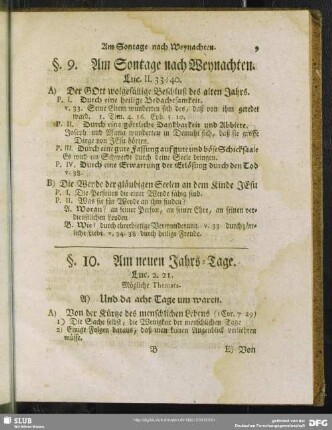 Am Sontage nach Weynachten. 9
§. 9. Am Sontage nach Weynachten.
Luc. II. 33/40.
A) Der GOtt wolgefällige Beschluß des alten Jahrs.
P. I. Durch eine heilige Bedachtsamkeit.
v. 33. Seine Eltern wunderten sich des, daß von ihm geredet
ward. 1. Tim. 4. 16. Eph. 5. 10.
P. II. Durch eine göttliche Danckbarkeit und Abbitte,
Joseph und Maria wunderten in Demuth sich, daß sie grosse
Dinge von JEsu hören.
P. III. Durch eine gute Fassung auf gute und böse Schicksaale
Es wird ein Schwerdt durch deine Seele dringen.
P. IV. Durch eine Erwartung der Erlösung durch den Tod
v. 38.
B) Die Weyde der gläubigen Seelen an dem Kinde JEsu
P. I. Die Personen die einer Weyde fähig sind.
P. II. Was sie für Weyde an ihm finden?
A. Woran? an seiner Person, an seiner Ehre, an seinen ver-
dienstlichen Leyden
B. Wie? durch ehrerbietige Verwunderung v. 33 durch
liche Liebe. v. 34. 38 durch heilige Freude.
§. 10. Am neuen Jahrs-Tage.
Luc. 2. 21.
Mögliche Themata.
A) Und da acht Tage um waren.
A) Von der Kürtze des menschlichen Lebens (1 Cor. 7 29)
1) Die Sache selbst, die Wenigkeit der menschlichen Tage
2) Einige Folgen daraus, daß man keinen Augenblick verliehren
müsse.
B B) Von
SLUB
Wir führen Wissen.
Gefördert von der
Deutschen Forschungsgemeinschaft